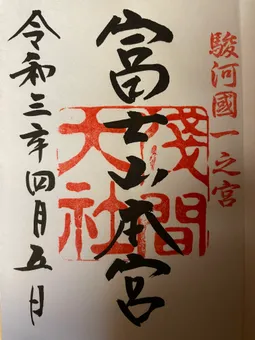 駿河國一之宮
富士山本宮
淺間大社
令和三年四月五日